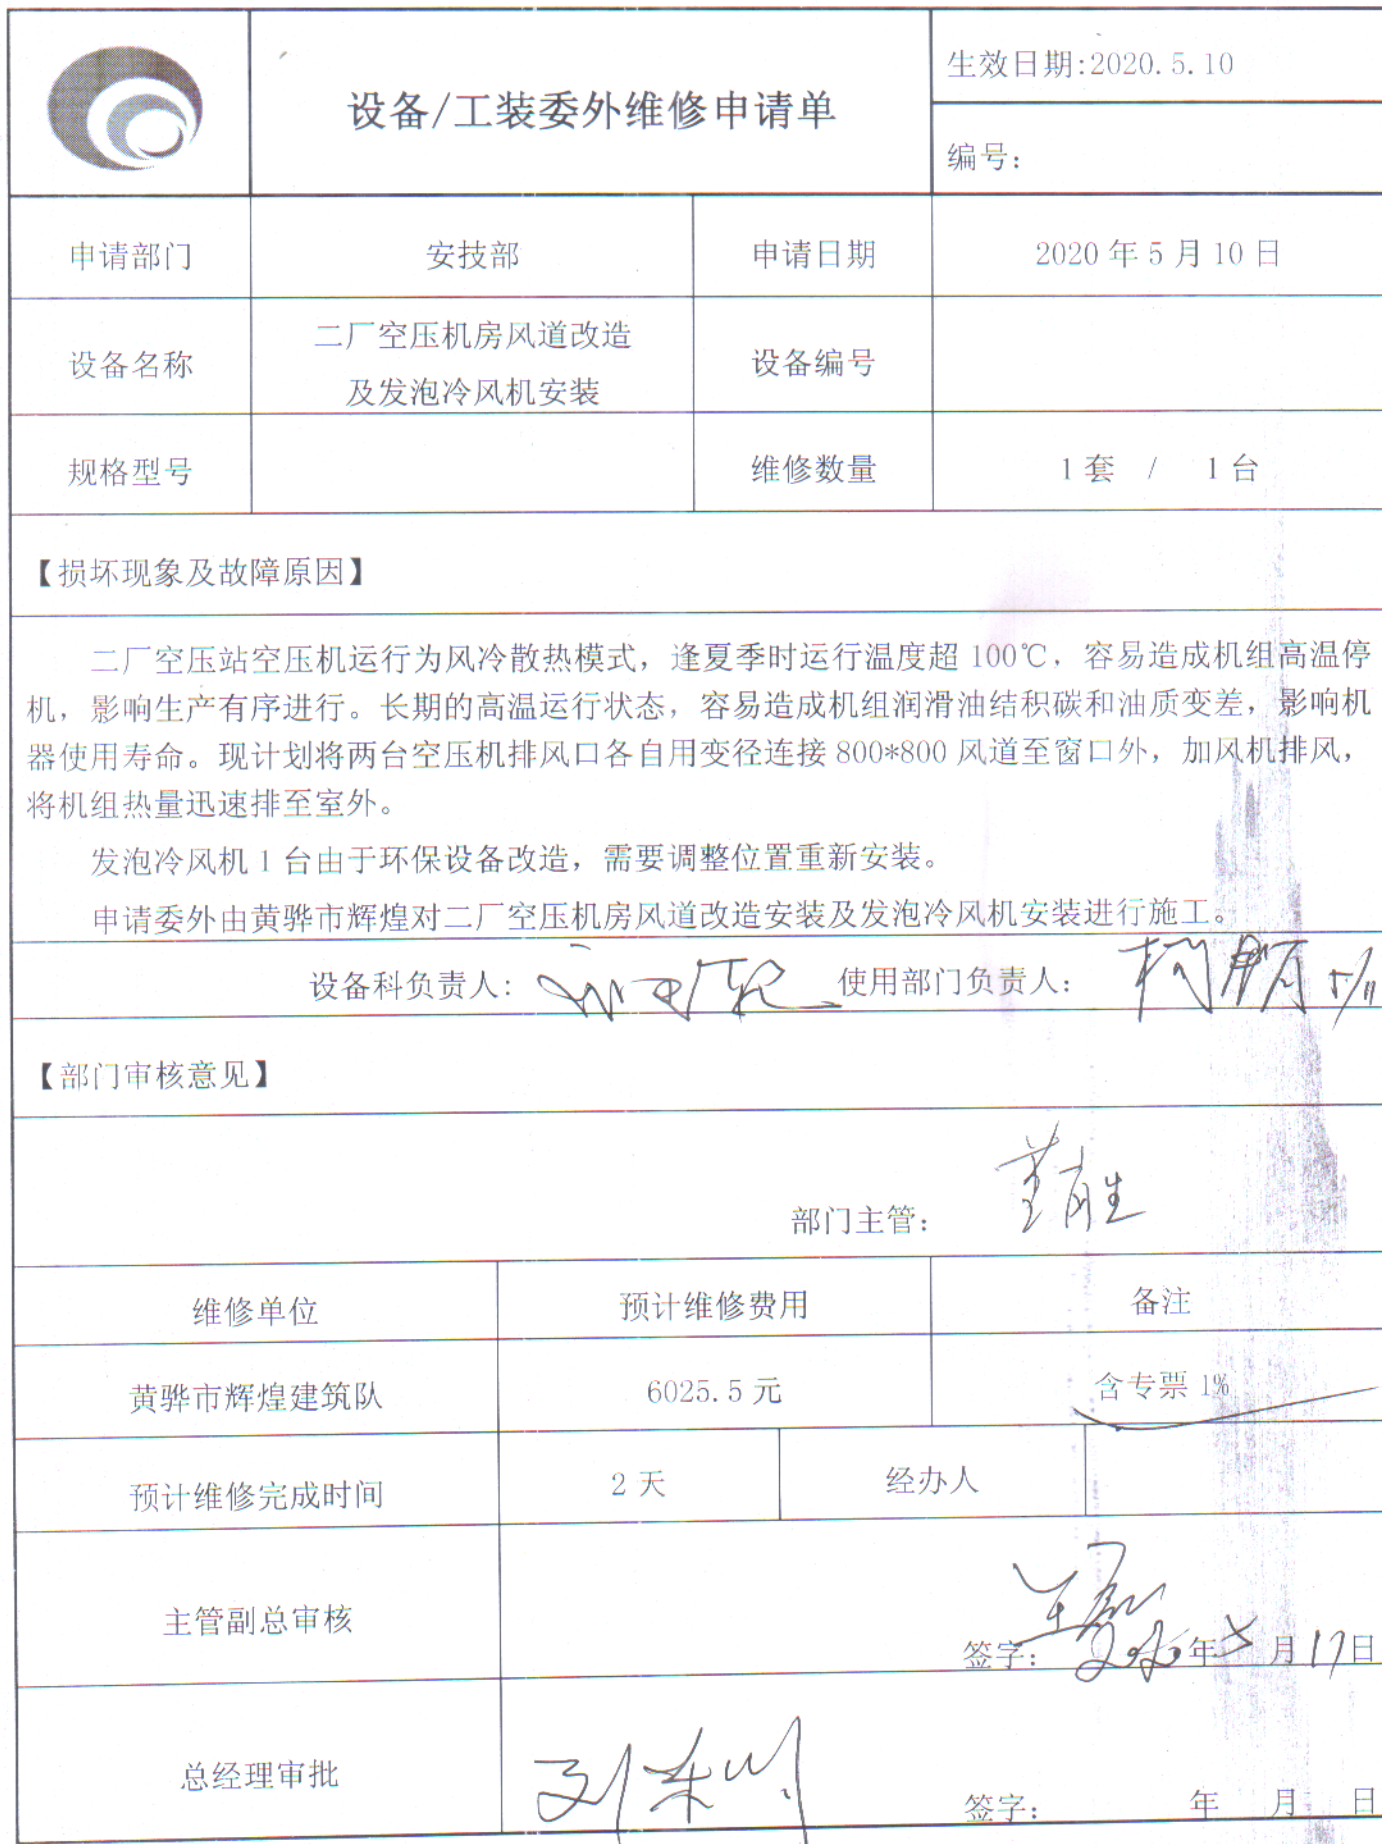 设备/工装委外维修申请单
生效日期:2020.5.10
编号：
申请部门
安技部
申请日期
2020 年 5 月 10 日
设备名称
二厂空压机房风道改造
及发泡冷风机安装
设备编号
规格型号
维修数量
1 套 / 1 台
【损坏现象及故障原因】
二厂空压站空压机运行为风冷散热模式，逢夏季时运行温度超 100℃，容易造成机组高温停
机，影响生产有序进行。长期的高温运行状态，容易造成机组润滑油结积碳和油质变差，影响机
器使用寿命。现计划将两台空压机排风口各自用变径连接 800*800 风道至窗口外，加风机排风，
将机组热量迅速排至室外。
发泡冷风机 1 台由于环保设备改造，需要调整位置重新安装。
申请委外由黄骅市辉煌对二厂空压机房风道改造安装及发泡冷风机安装进行施工。
设备科负责人：
使用部门负责人： 5/11
【部门审核意见】
部门主管：
维修单位
预计维修费用
备注
黄骅市辉煌建筑队
6025.5 元
含专票 1%
预计维修完成时间
2 天
经办人
主管副总审核
签字： 年 5 月 17 日
总经理审批
签字： 年 月 日